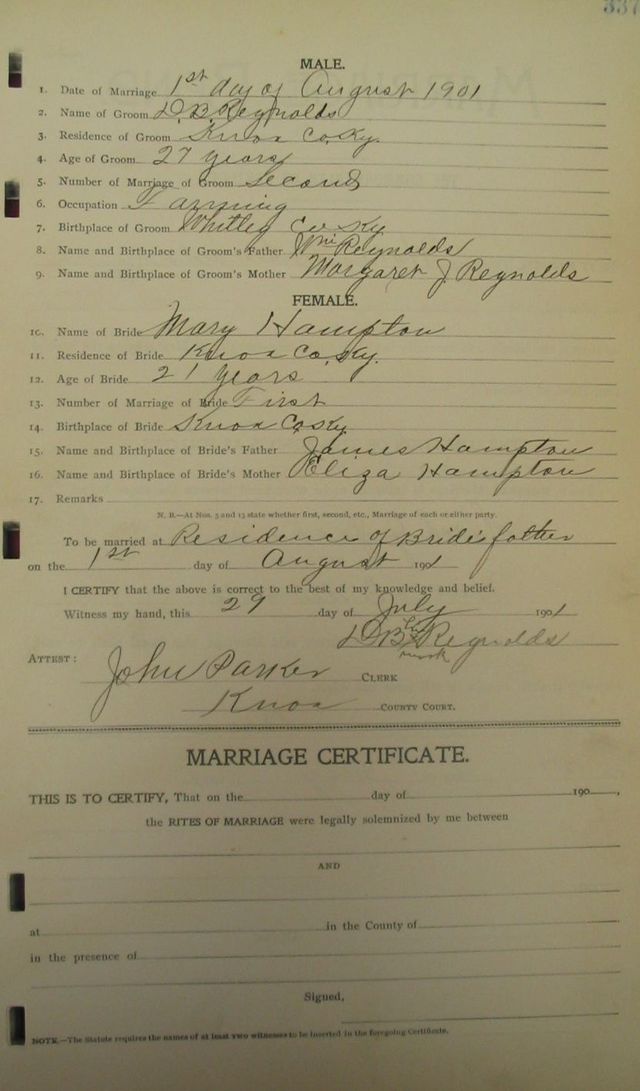 337
MALE.
1. Date of Marriage 1st day of August 1901
2. Name of Groom D. B. Reynolds
3. Residence of Groom Knox Co. Ky.
4. Age of Groom 27 years
5. Number of Marriage of Groom Second
6. Occupation Farming
7. Birthplace of Groom Whitley Co Ky
8. Name and Birthplace of Groom's Father Wm Reynolds
9. Name and Birthplace of Groom's Mother Margaret J Reynolds
FEMALE.
10. Name of Bride Mary Hampton
11. Residence of Bride Knox Co. Ky.
12. Age of Bride 21 years
13. Number of Marriage of Bride First
14. Birthplace of Bride Knox Co Ky
15. Name and Birthplace of Bride's Father James Hampton
16. Name and Birthplace of Bride's Mother Eliza Hampton
17. Remarks
N. B.—At Nos. 5 and 13 state whether first, second, etc., Marriage of each or either party.
To be married at Residence of Bride's father
on the 1st day of August 1901
I CERTIFY that the above is correct to the best of my knowledge and belief.
Witness my hand, this 29 day of July 1901
D. B. his x mark Reynolds
ATTEST: John Parker CLERK
Knox COUNTY COURT.
MARRIAGE CERTIFICATE.
THIS IS TO CERTIFY, That on the day of 190 ,
the RITES OF MARRIAGE were legally solemnized by me between
AND
at in the County of
in the presence of
Signed,
NOTE.—The Statute requires the names of at least two witnesses to be inserted in the foregoing Certificate.